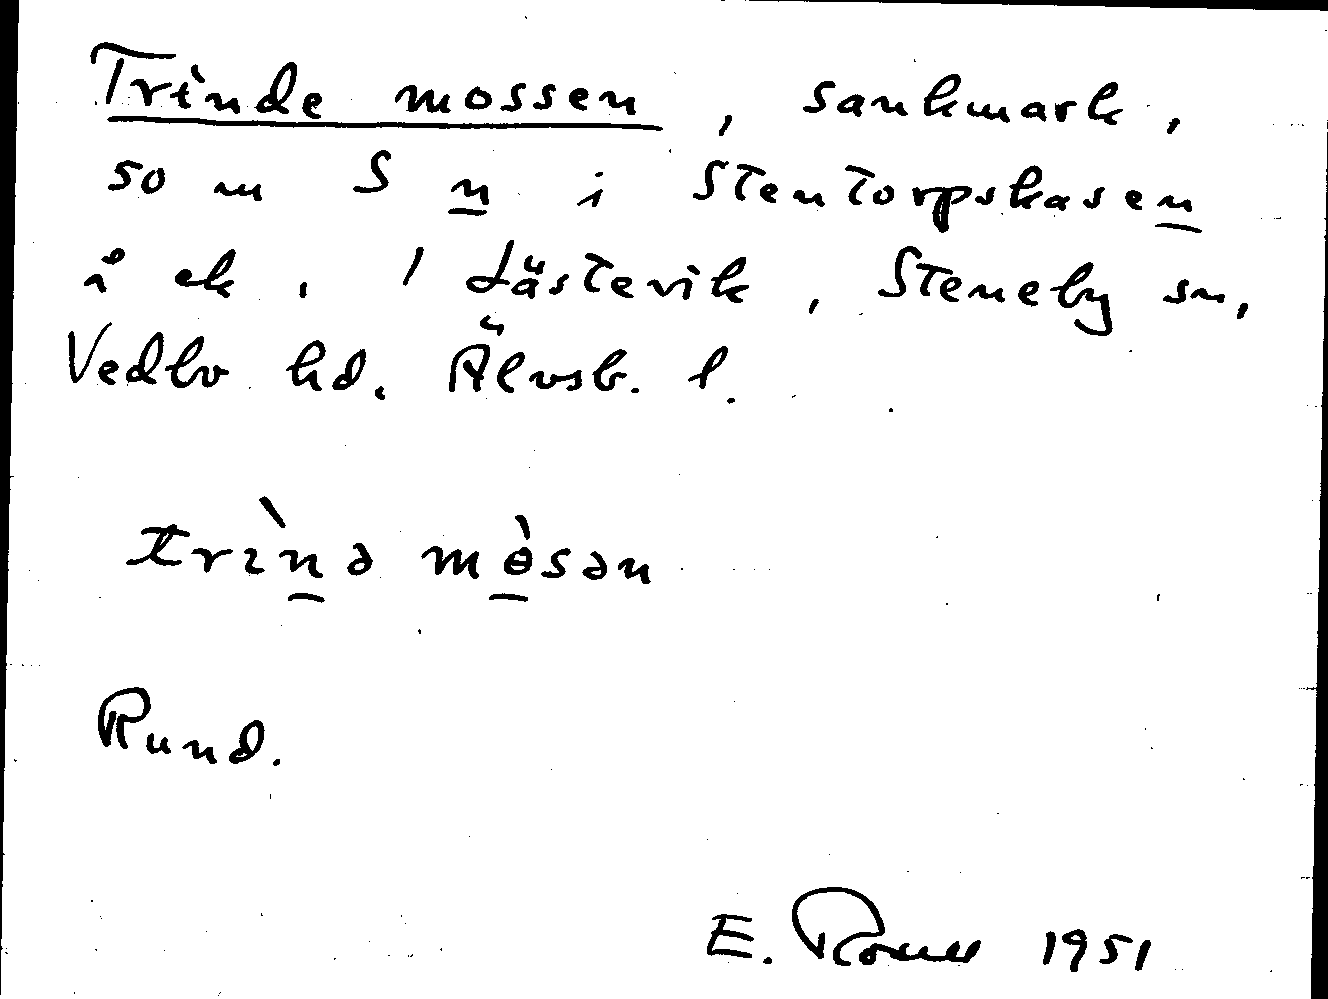 Trinde mossen, sankmark,
som S n i Stentorpskasen
å ek. 1 Lästevik, Steneby sn,
Vedbo hd. Älvsb. l.
trìnə mòsən
Rund.
E. 1951